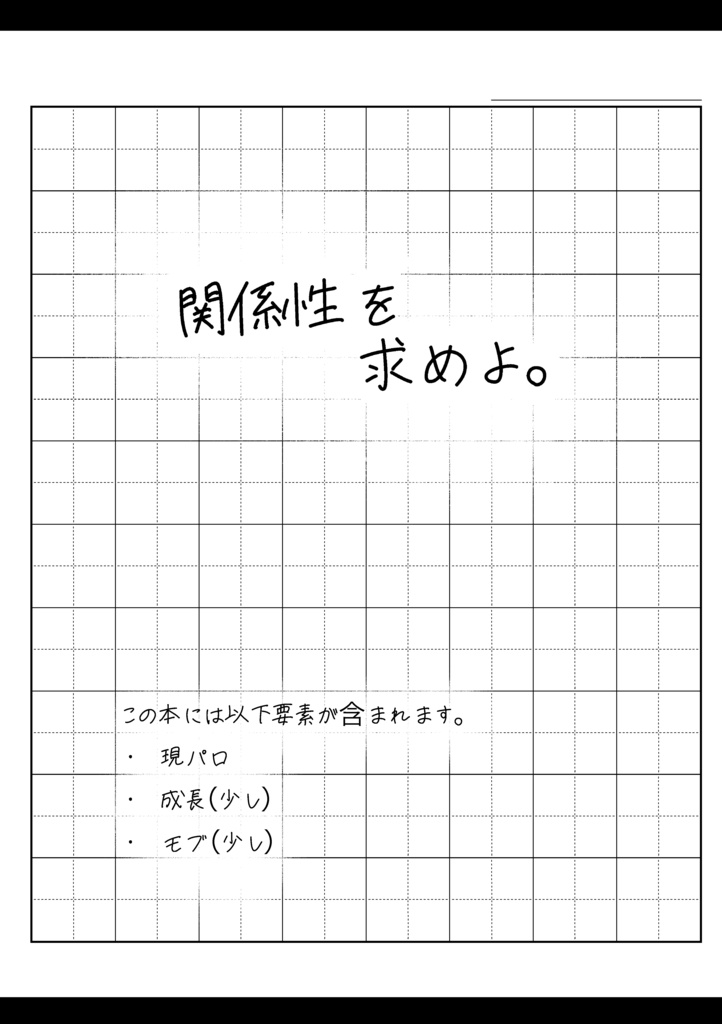 関係性を
求めよ。
この本には以下要素が含まれます。
・ 現パロ
・ 成長(少し)
・ モブ(少し)